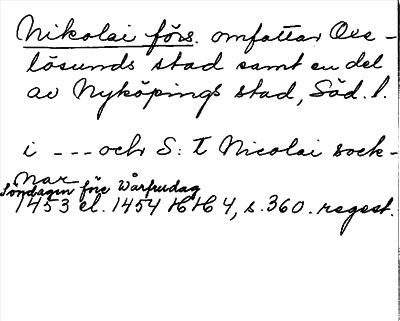 Nikolai förs. omfattar Oxe-
lösunds stad samt en del
av Nyköpings stad, Söd. l.
i --- och S:t Nicolai sock-
nar
Söndagen före Warfrudag
1453 el. 1454 HH 4, s. 360. regest.